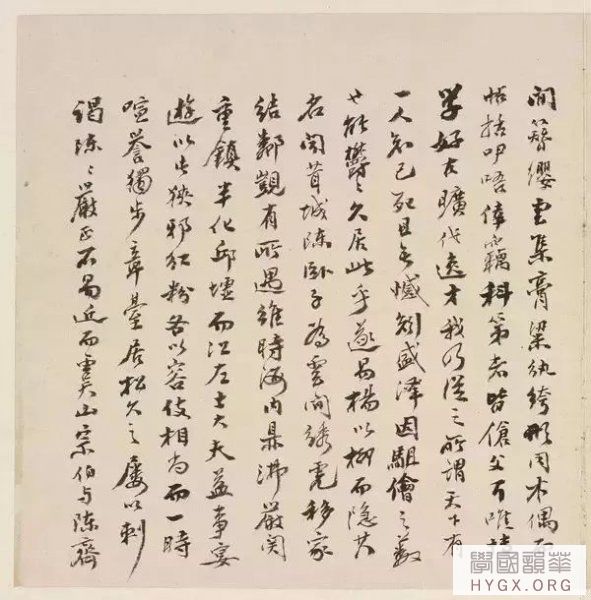 間簪纓雲集膏粱紈绔形同木偶而
帖括咿唔倖竊科第者皆傖父耳唯博
學好古曠代逸才我乃從之所謂天下有
一人知己死且無憾矧盛澤固駔儈之藪
也能鬱〻久居此乎遂易楊以柳而隱其
名聞茸城陳臥子為雲間繡虎移家
結鄰覬有所遇維時海内鼎沸嚴関
重鎮半化邱墟而江左士大夫益事宴
遊以故狹邪紅粉各以容伎相尚而一時
喧譽獨步章臺居松久之屢以刺
謁陳〻嚴正不易近而虞山宗伯与陳齊
學國韻華
HYGX.ORG